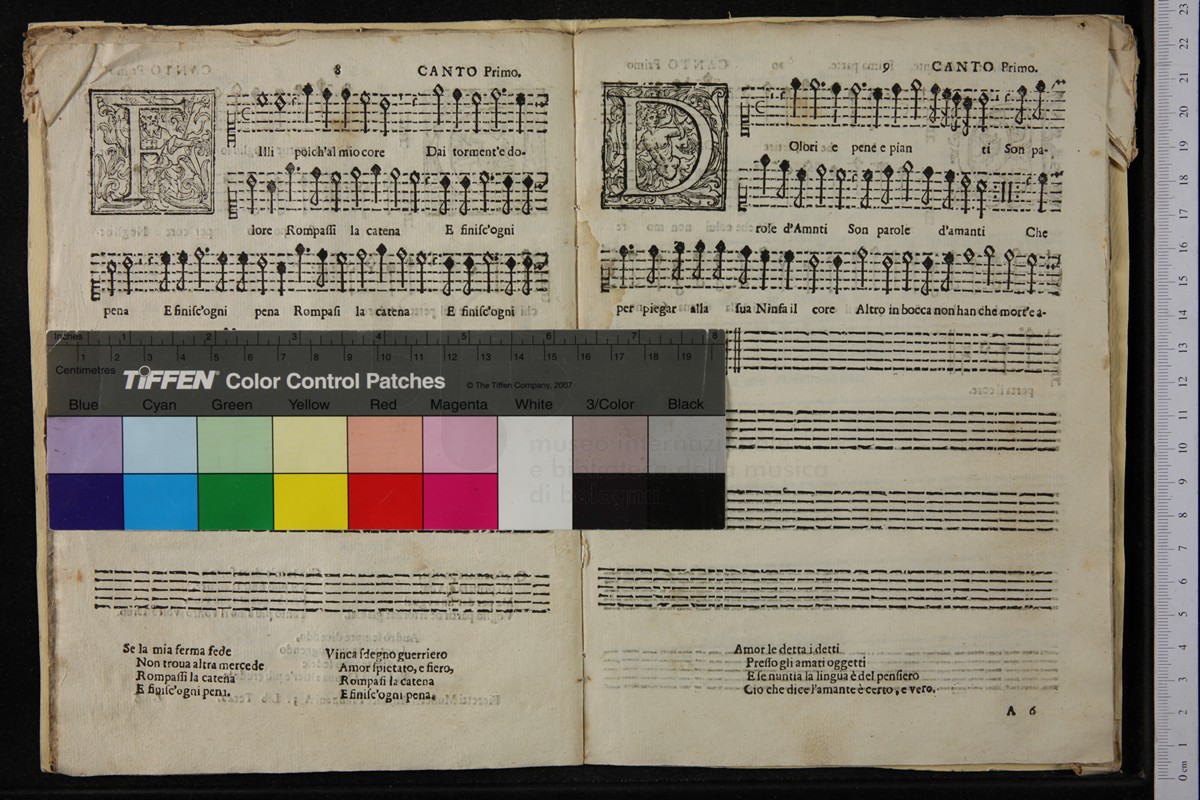 8 CANTO Primo.
F
Illi poich'al mio core Dai torment'e do-
lore Rompassi la catena E finisc'ogni
pena E finisc'ogni pena Rompasi la catena E finisc'ogni
Se la mia ferma fede
Non troua altra mercede
Rompassi la catena
E finisc'ogni pena.
Vinca sdegno guerriero
Amor spietato, e fiero,
Rompasi la catena
E finisc'ogni pena.
9 CANTO Primo.
D
Olori e pene e pian ti Son pa-
role d'Amnti Son parole d'amanti Che
per piegar alla sua Ninfa il core Altro in bocca non han che mort'e a-
Amor le detta i detti
Presso gli amati oggetti
E se nuntia la lingua è del pensiero
Cio che dice l'amante è certo, e vero.
A 6
Inches 1 2 3 4 5 6 7 8
Centimetres 1 2 3 4 5 6 7 8 9 10 11 12 13 14 15 16 17 18 19
TIFFEN® Color Control Patches © The Tiffen Company, 2007
Blue Cyan Green Yellow Red Magenta White 3/Color Black
museo internazi
e biblioteca della musica
di bologna
23
22
21
20
19
18
17
16
15
14
13
12
11
10
9
8
7
6
5
4
3
2
1
0 cm